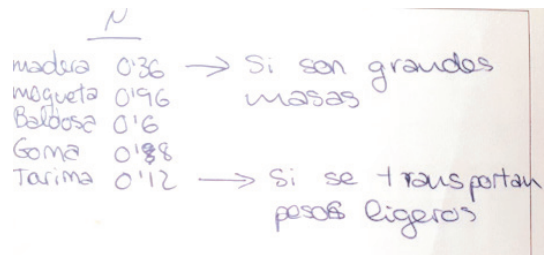 N
madera 0'36 → Si son grandes
moqueta 0'96 masas
Baldosa 0'6
Goma 0'88
Tarima 0'12 → Si se transportan
pesos ligeros